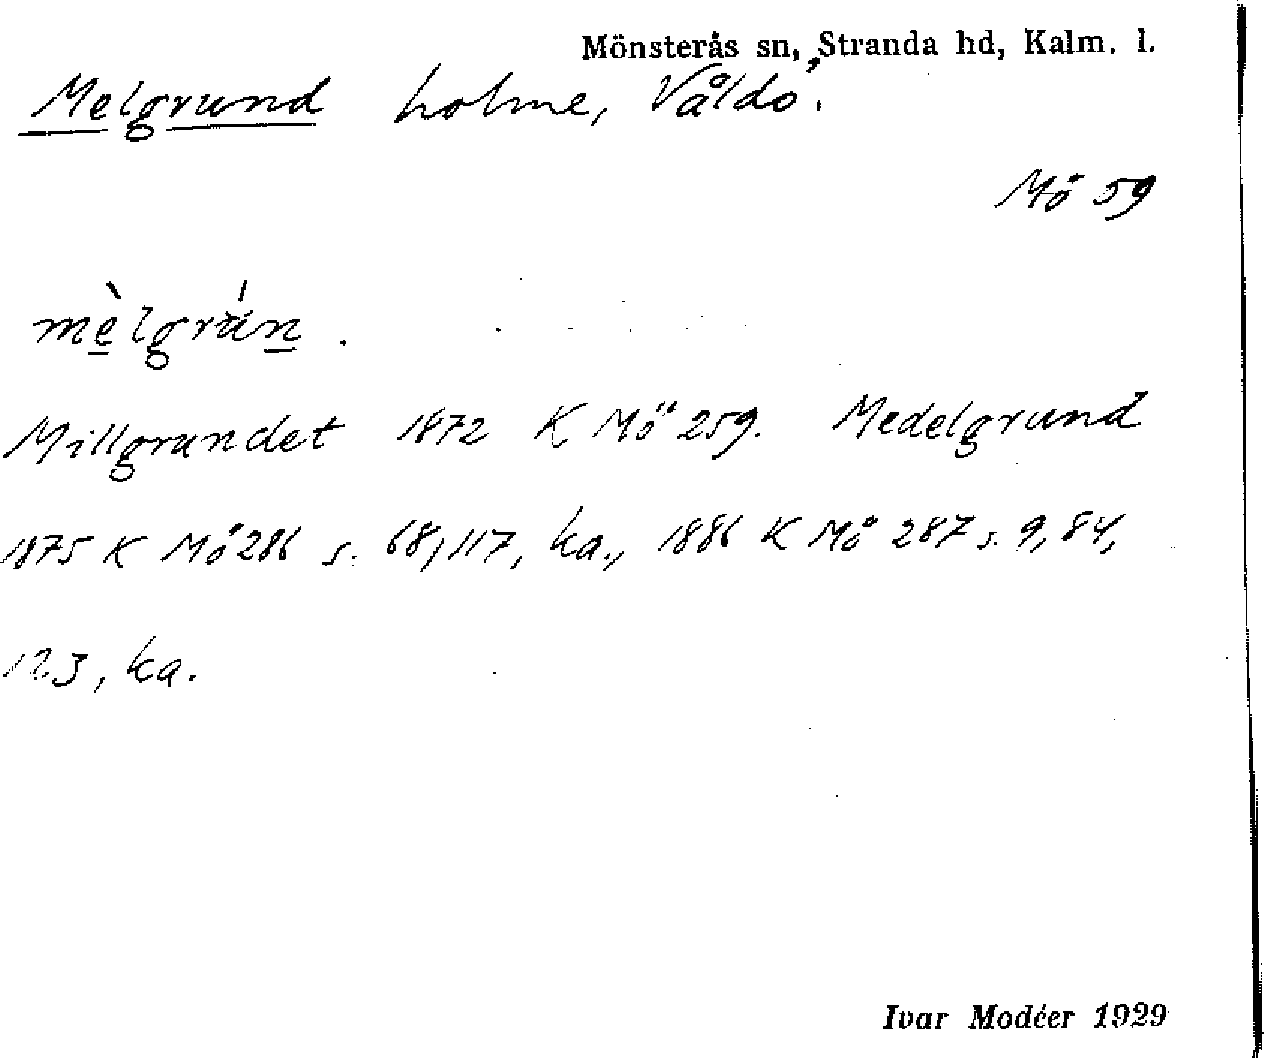 Mönsterås sn, Stranda hd, Kalm. l.
Melgrund holme, Våldö.
Mö 59
mèlgrún.
Millgrundet 1872 K Mö 259. Medelgrund
1875 K Mö 286 s. 68, 117, ka., 1886 K Mö 287 s. 9, 84,
123, ka.
Ivar Modéer 1929